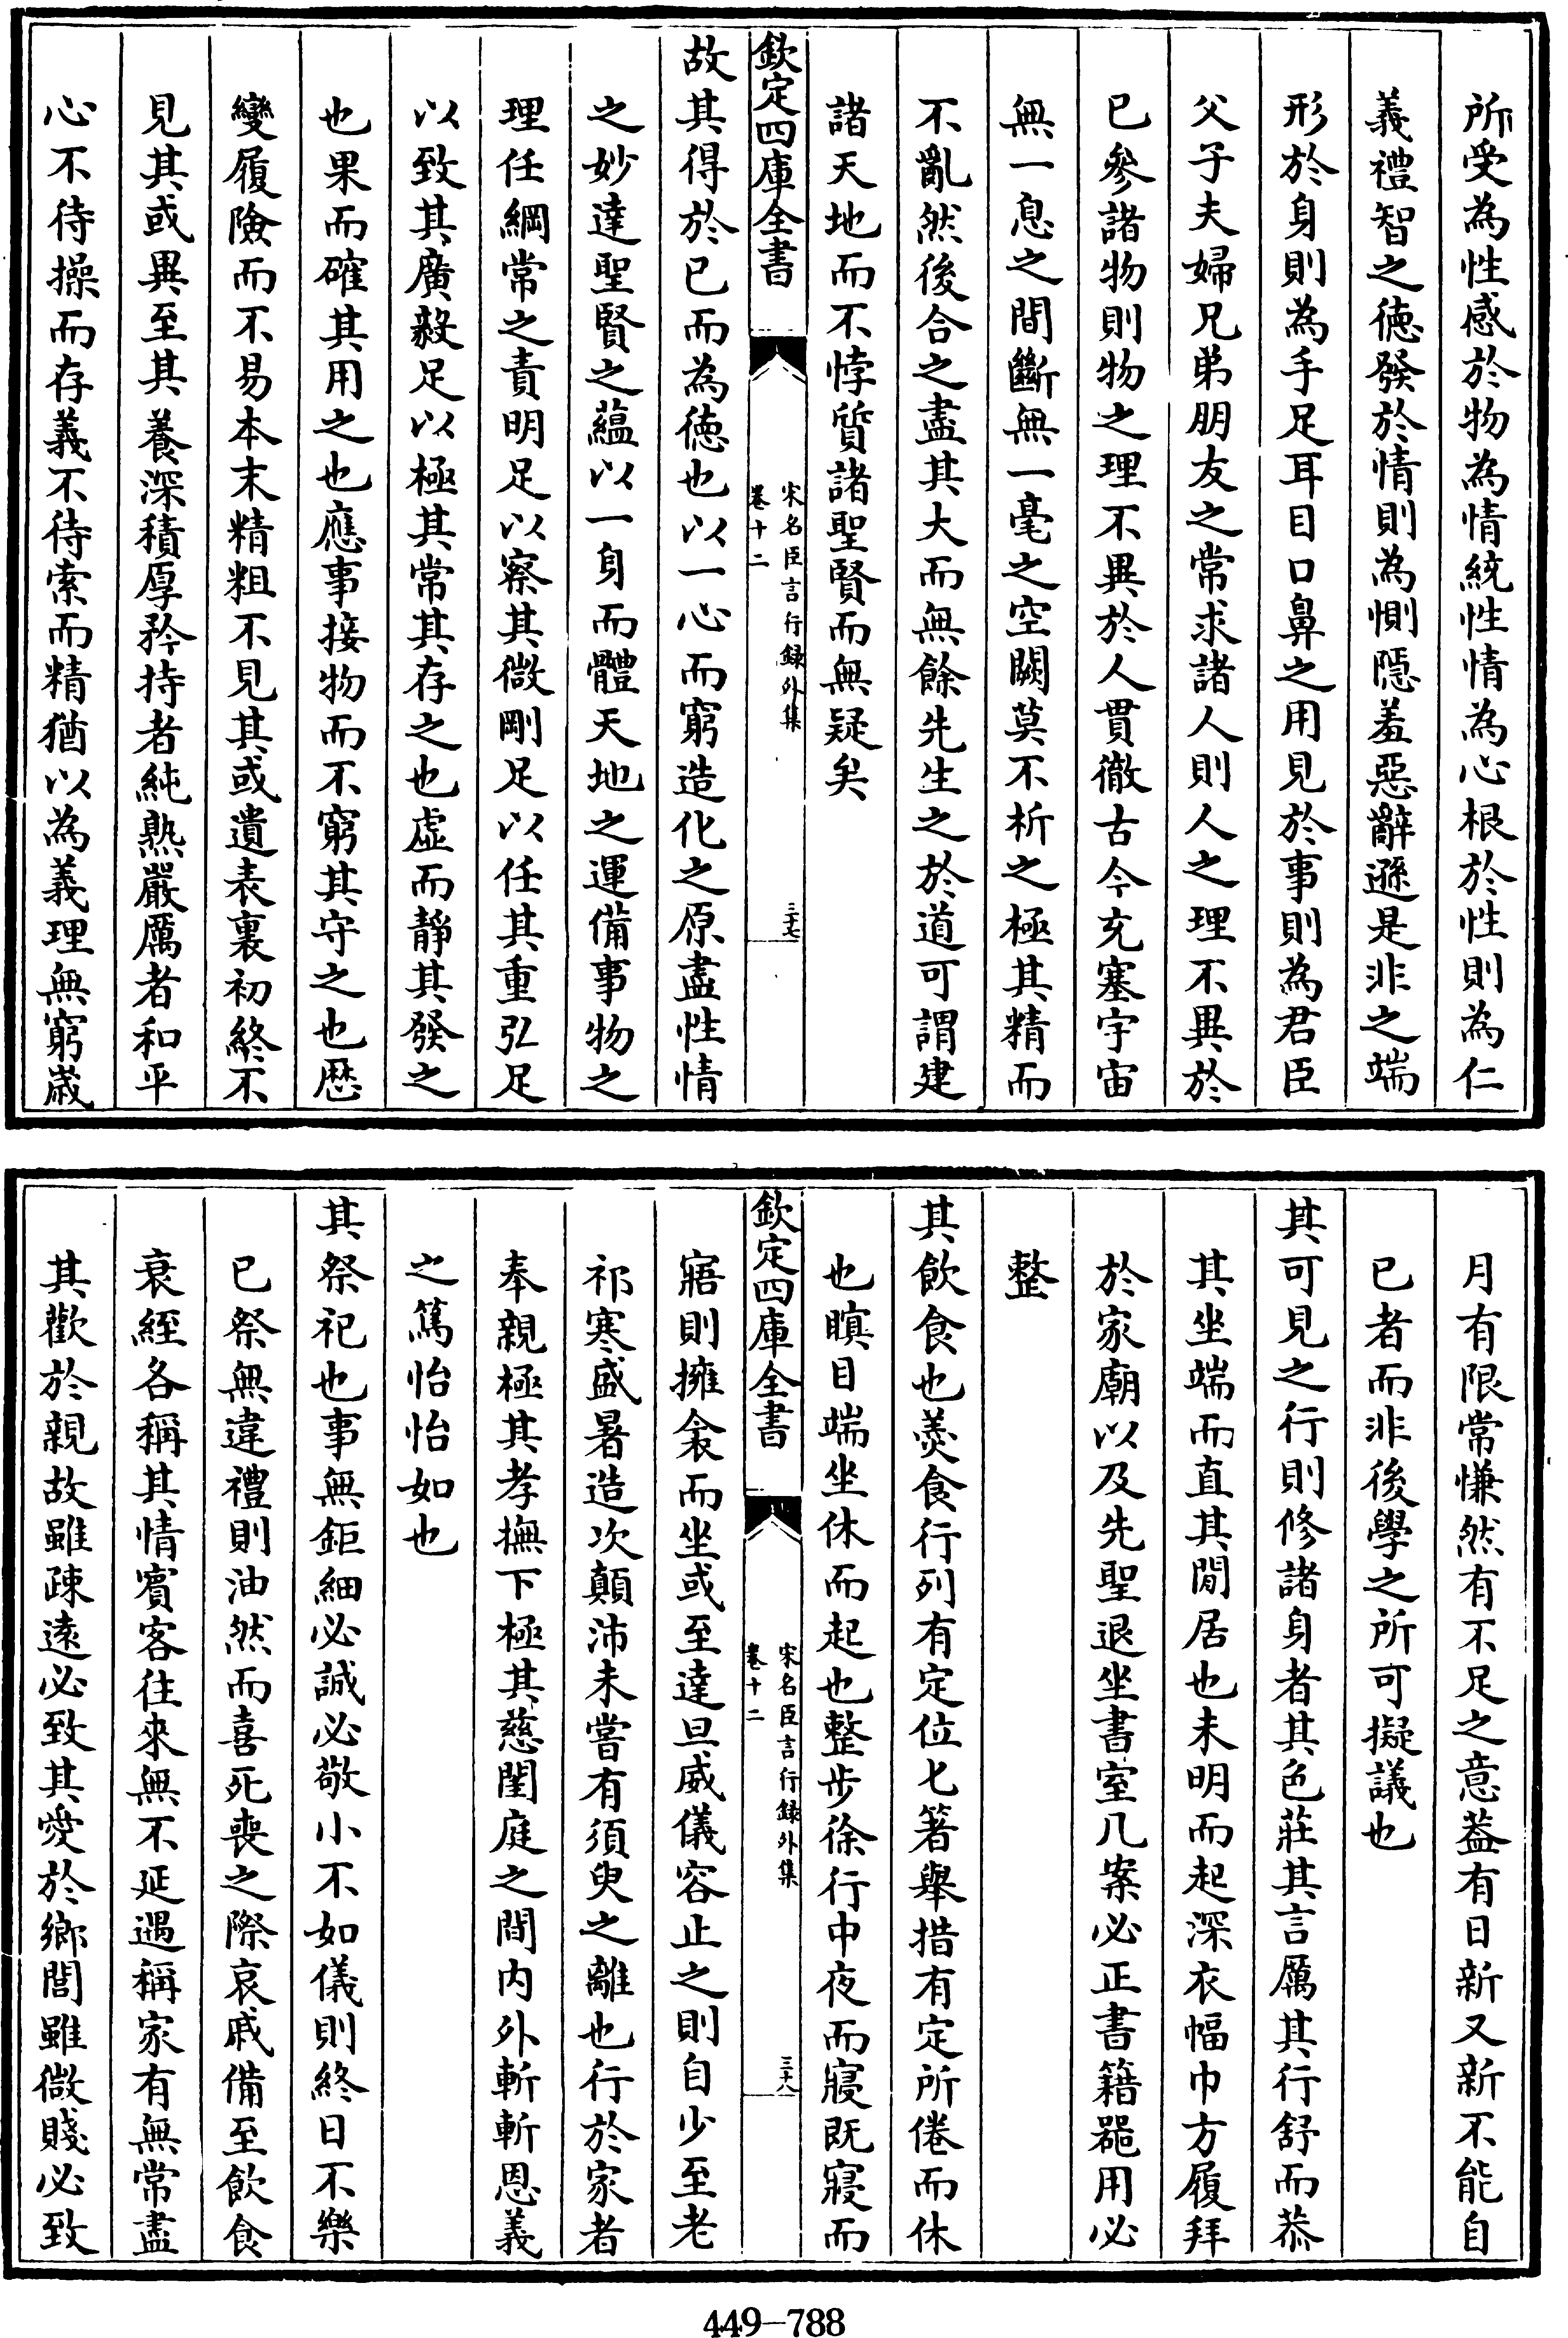 所受為性感於物為情統性情為心根於性則為仁
義禮智之德發於情則為惻隱羞惡辭遜是非之端
形於身則為手足耳目口鼻之用見於事則為君臣
父子夫婦兄弟朋友之常求諸人則人之理不異於
已參諸物則物之理不異於人貫徹古今充塞宇宙
無一息之間斷無一毫之空闕莫不析之極其精而
不亂然後合之盡其大而無餘先生之於道可謂建
諸天地而不悖質諸聖賢而無疑矣
欽定四庫全書
宋名臣言行録外集
卷十二
三十七
故其得於已而為德也以一心而窮造化之原盡性情
之妙達聖賢之蘊以一身而體天地之運備事物之
理任綱常之責明足以察其微剛足以任其重弘足
以致其廣毅足以極其常其存之也虛而靜其發之
也果而確其用之也應事接物而不窮其守之也歴
變履險而不易本末精粗不見其或遺表裏初終不
見其或異至其養深積厚矜持者純熟嚴厲者和平
心不待操而存義不待索而精猶以為義理無窮歲
月有限常慊然有不足之意葢有日新又新不能自
已者而非後學之所可擬議也
其可見之行則修諸身者其色莊其言厲其行舒而恭
其坐端而直其閒居也未明而起深衣幅巾方履拜
於家廟以及先聖退坐書室几案必正書籍器用必
整
其飲食也羮食行列有定位匕箸舉措有定所倦而休
也瞑目端坐休而起也整步徐行中夜而寢既寢而
欽定四庫全書
宋名臣言行録外集
卷十二
三十八
寤則擁衾而坐或至達旦威儀容止之則自少至老
祁寒盛暑造次顛沛未嘗有須臾之離也行於家者
奉親極其孝撫下極其慈閨庭之間内外斬斬恩義
之篤怡怡如也
其祭祀也事無鉅細必誠必敬小不如儀則終日不樂
已祭無違禮則油然而喜死喪之際哀戚備至飲食
衰絰各稱其情賓客往來無不延遇稱家有無常盡
其歡於親故雖疎遠必致其愛於鄉閭雖微賤必致
449-788